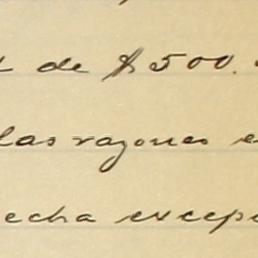 de $500.
las razones e
echa excep